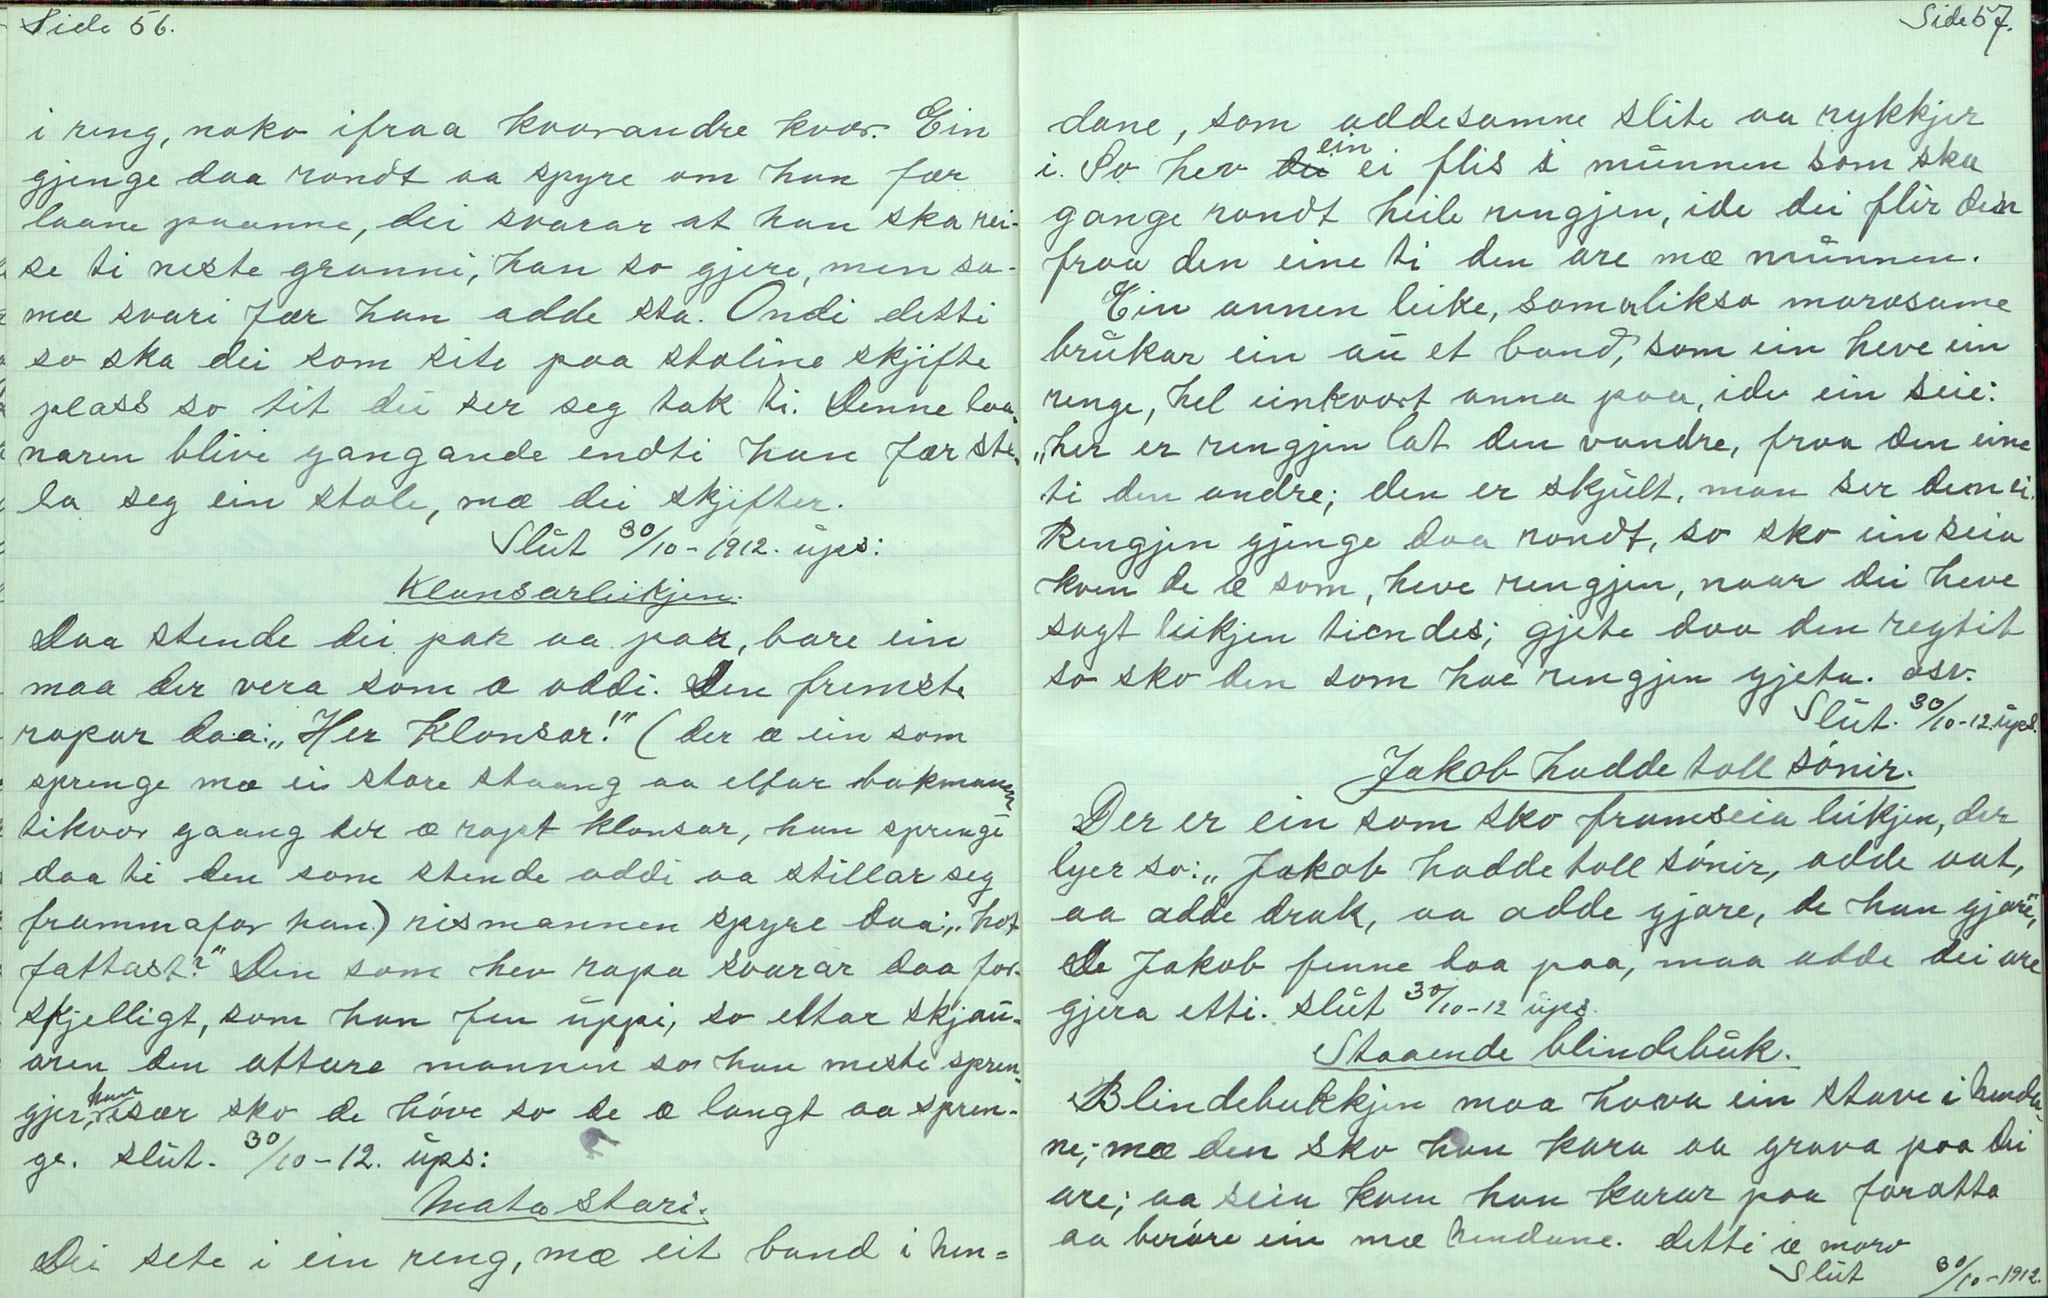 Side 56.
i ring, noko ifraa kvarandre kvar. Ein
gjenge daa rondt aa spyre om han fær
laane paanne, dei svarar at han ska rei-
se ti neste granni, han so gjere, men sa-
ma svari fær han adde sta. Ondi detti
so ska dei som site paa stoline skjifte
plass so tit dei ser seg tak ti. Denne laa-
naren blive gangande endti han fær ste-
la seg ein stole, mæ dei skjifter.
Slut 30/10-1912. ups:
Klonsarleikjen.
Daa stende dei par aa par, bare ein
maa der vera som æ oddi. Den fremste
ropar daa: „Her Klonsar!" (der æ ein som
sprenge mæ ei store staang aa eltar bakmannen
tikvor gaang der æ ropt klonsar, han sprenge
daa ti den som stende oddi aa stillar seg
frammafor han) rismannen spyre daa: „hot
fattast?" Den som hev ropa svarar daa for-
skjelligt, som han fen uppi, so eltar skjau-
aren den attare mannen so han meste spren-
gjer, han især sko de höve so de æ langt aa spren-
ge. slut. 30/10-12. ups:
Mata stari.
Dei sete i ein reng, mæ eit band i hen=
Side 57.
dane, som addesamne slite aa rykkjer
i. So hev ein ei flis i munnen som ska
gange rondt heile rengjen, ide dei flir den
fraa den eine ti den are mæ munnen.
Ein annen leike, som likso morosame
brukar ein au et band, som ein heve ein
renge, hel einkvort anna paa, ide ein seie:
„her er rengjen lat den vandre, fraa den eine
ti den andre; den er skjult, man ser den ei.
Rengjen gjenge daa rondt, so sko ein seia
kven de æ som, heve rengjen, naar dei heve
sagt leikjen tiendes; gjete daa den regtit
so sko den som hae rengjen gjeta. osv.
Slut. 30/10-12. ups.
Jakob hadde toll sönir.
Der er ein som sko framseia leikjen, der
lyer so: „Jakob hadde toll sönir, adde aat,
aa adde drak, aa adde gjore, de han gjore,"
De Jakob fenne daa paa, maa adde dei are
gjera etti. slut 30/10-12 ups.
Staaende blindebuk.
Blindebukkjen maa hava ein stave i henda-
ne; mæ den sko han kara aa grava paa dei
are; aa seia kven han karar paa foratta
aa beröre ein mæ hendane. detti æ moro
Slut 30/10-1912.